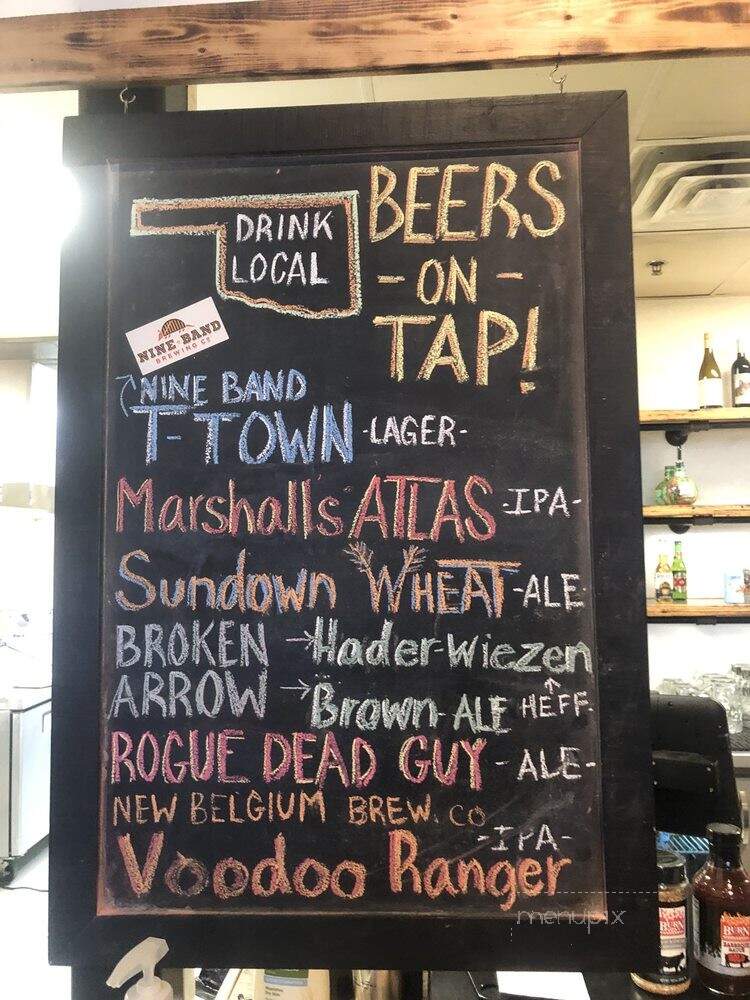 DRINK
LOCAL
BEERS
- ON -
TAP!
NINE BAND
BREWING CO
NINE BAND
T-TOWN -LAGER-
Marshall's ATLAS -IPA-
Sundown WHEAT -ALE
BROKEN → Hader-Wiezen
ARROW → Brown ALE HEFF-
ROGUE DEAD GUY - ALE-
NEW BELGIUM BREW. CO
-IPA-
Voodoo Ranger
menupix
BURN
BURN